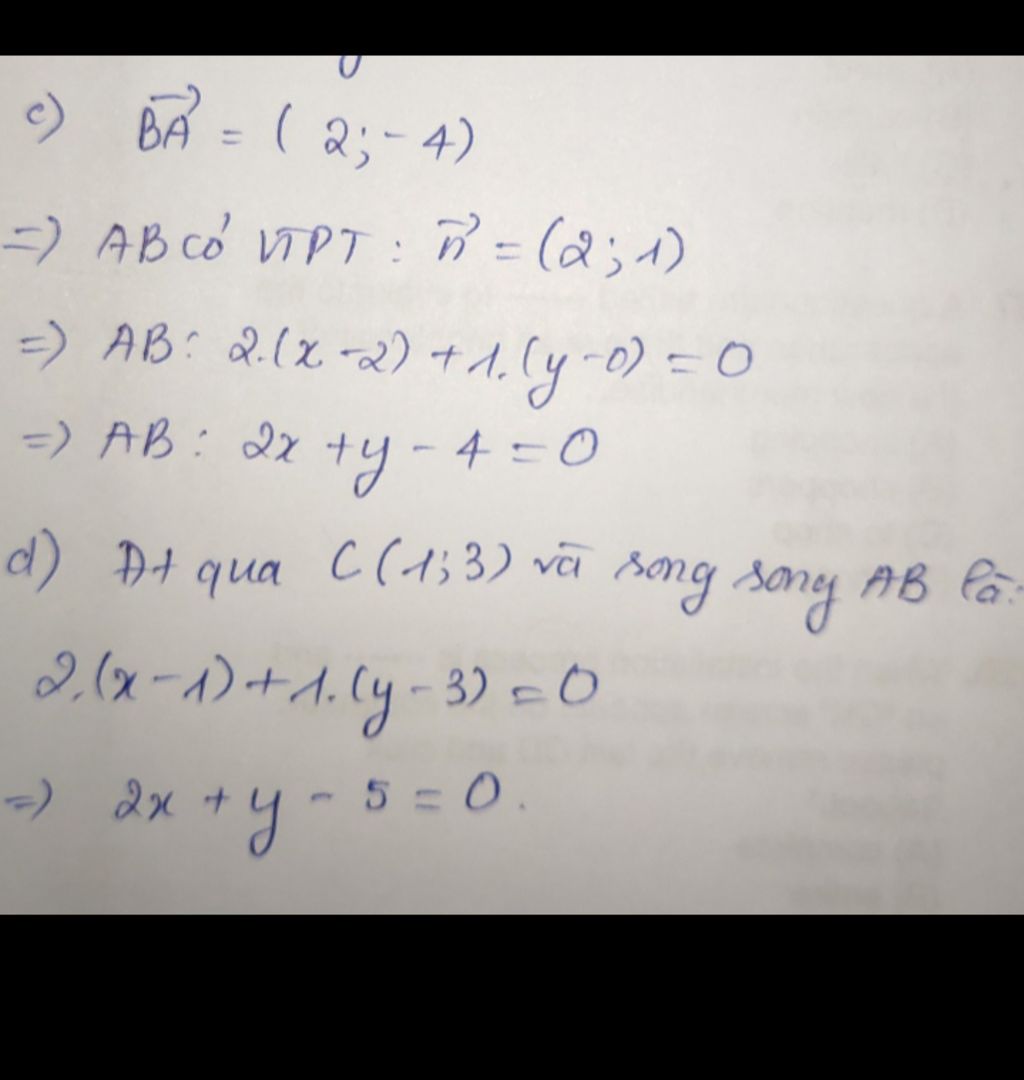 c) BA⃗ = ( 2; - 4)
=) AB có VTPT : n⃗ = (2; 1)
=) AB: 2.(x -2) + 1.(y -0) = 0
=) AB: 2x + y - 4 = 0
d) Đt qua C (1; 3) và song song AB là:
2.(x - 1) + 1.(y - 3) = 0
=) 2x + y - 5 = 0.